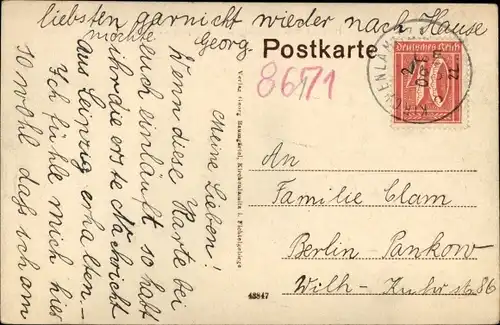 Meine Lieben!
Wenn diese Karte bei
euch einläuft so habt
ihr die erste Nachricht
aus Leipzig erhalten. –
Ich fühle mich hier
so wohl daß ich am
liebsten garnicht wieder nach Hause
möchte
Georg
Postkarte
8671
Deutsches Reich
An
Familie Clam
Berlin-Pankow
Wilh-Kuhr str. 86
Verlag Georg Baumgärtel, Kirchenlamitz i. Fichtelgebirge
43847